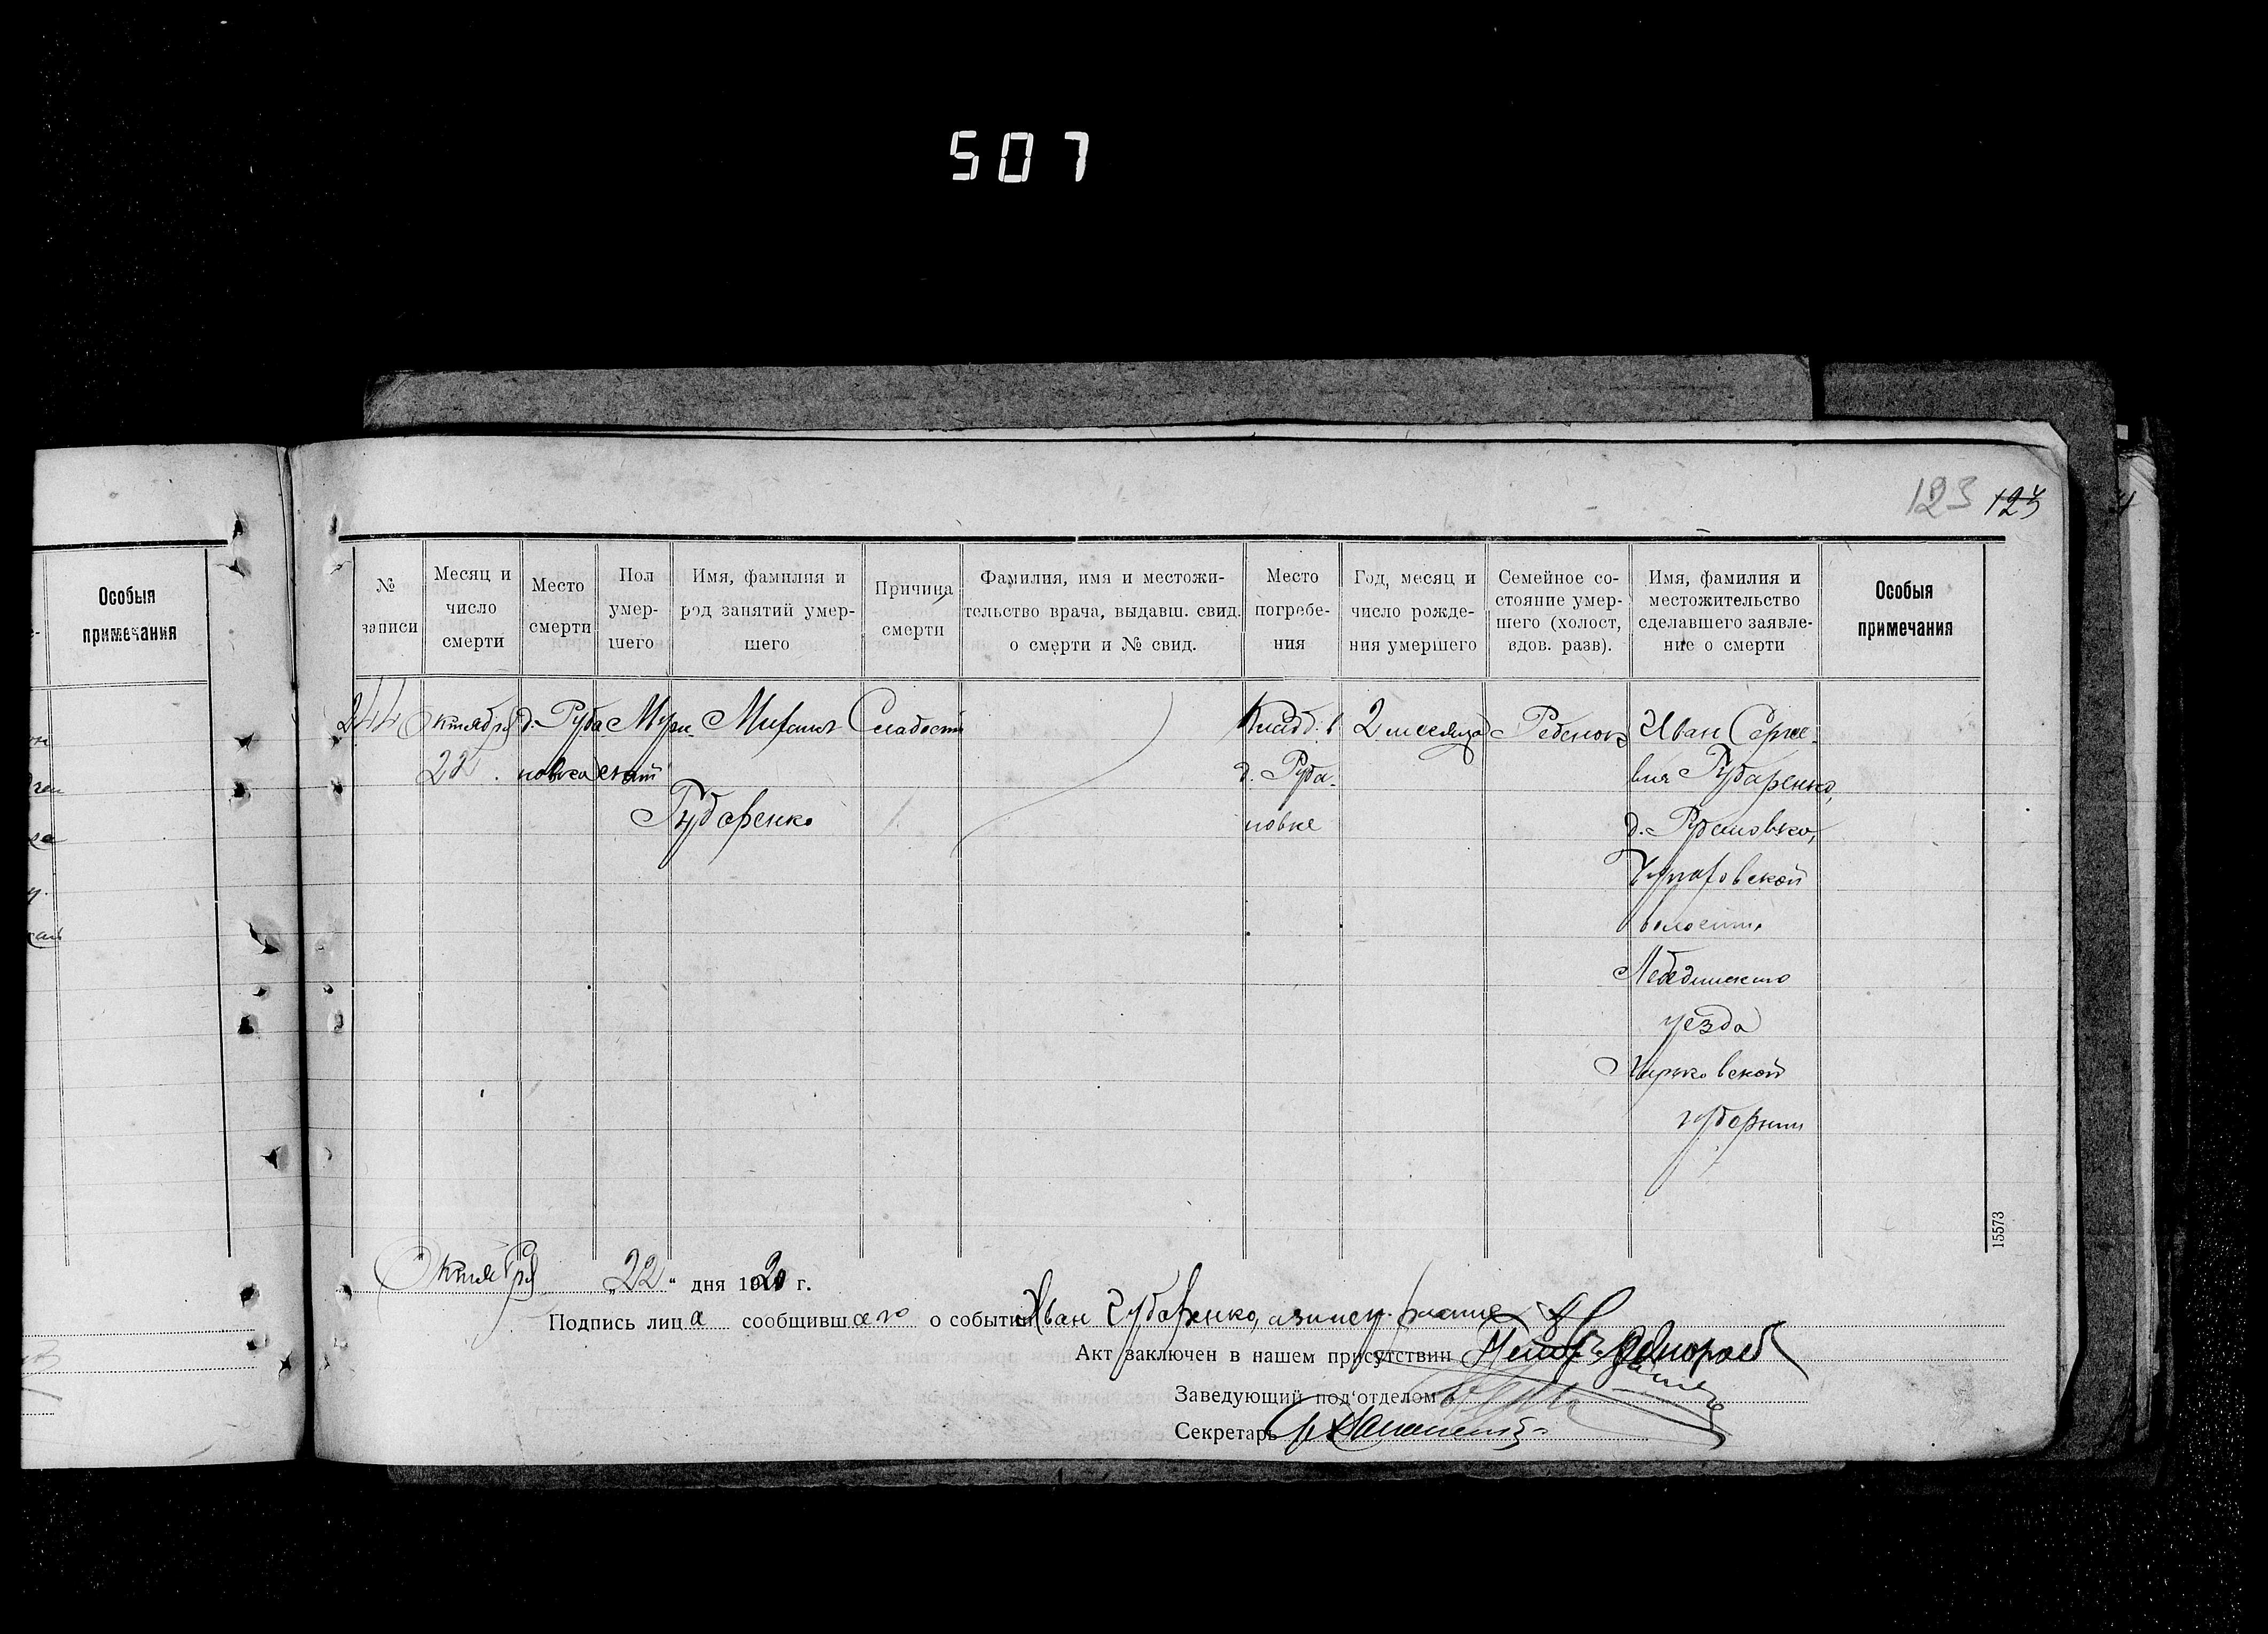 507
123 123
Особыя
примечания
№
записи
Месяц и
число
смерти
Место
смерти
Пол
умер-
шего
Имя, фамилия и
род занятий умер-
шего
Причина
смерти
Фамилия, имя и местожи-
тельство врача, выдавш. свид.
о смерти и № свид.
Место
погребе-
ния
Год, месяц и
число рожде-
ния умершего
Семейное со-
стояние умер-
шего (холост,
вдов. разв).
Имя, фамилия и
местожительство
сделавшего заявле-
ние о смерти
Особыя
примечания
244
Октября
22
д. Руба
новка
Муж
ской
Михаил
Губаренко
Слабость
Кладб. в
д. Руба-
новке
2 месяца
Ребенок
Иван Серге-
вич Губаренко,
д. Рубановка,
волости,
Лебединского
уезда
Харьковской
губернии
15573
Октября „22“ дня 1920 г.
Подпись лица сообщившаго о событии Иван Губаренко,
Акт заключен в нашем присутствии
Заведующий под'отделом
Секретарь